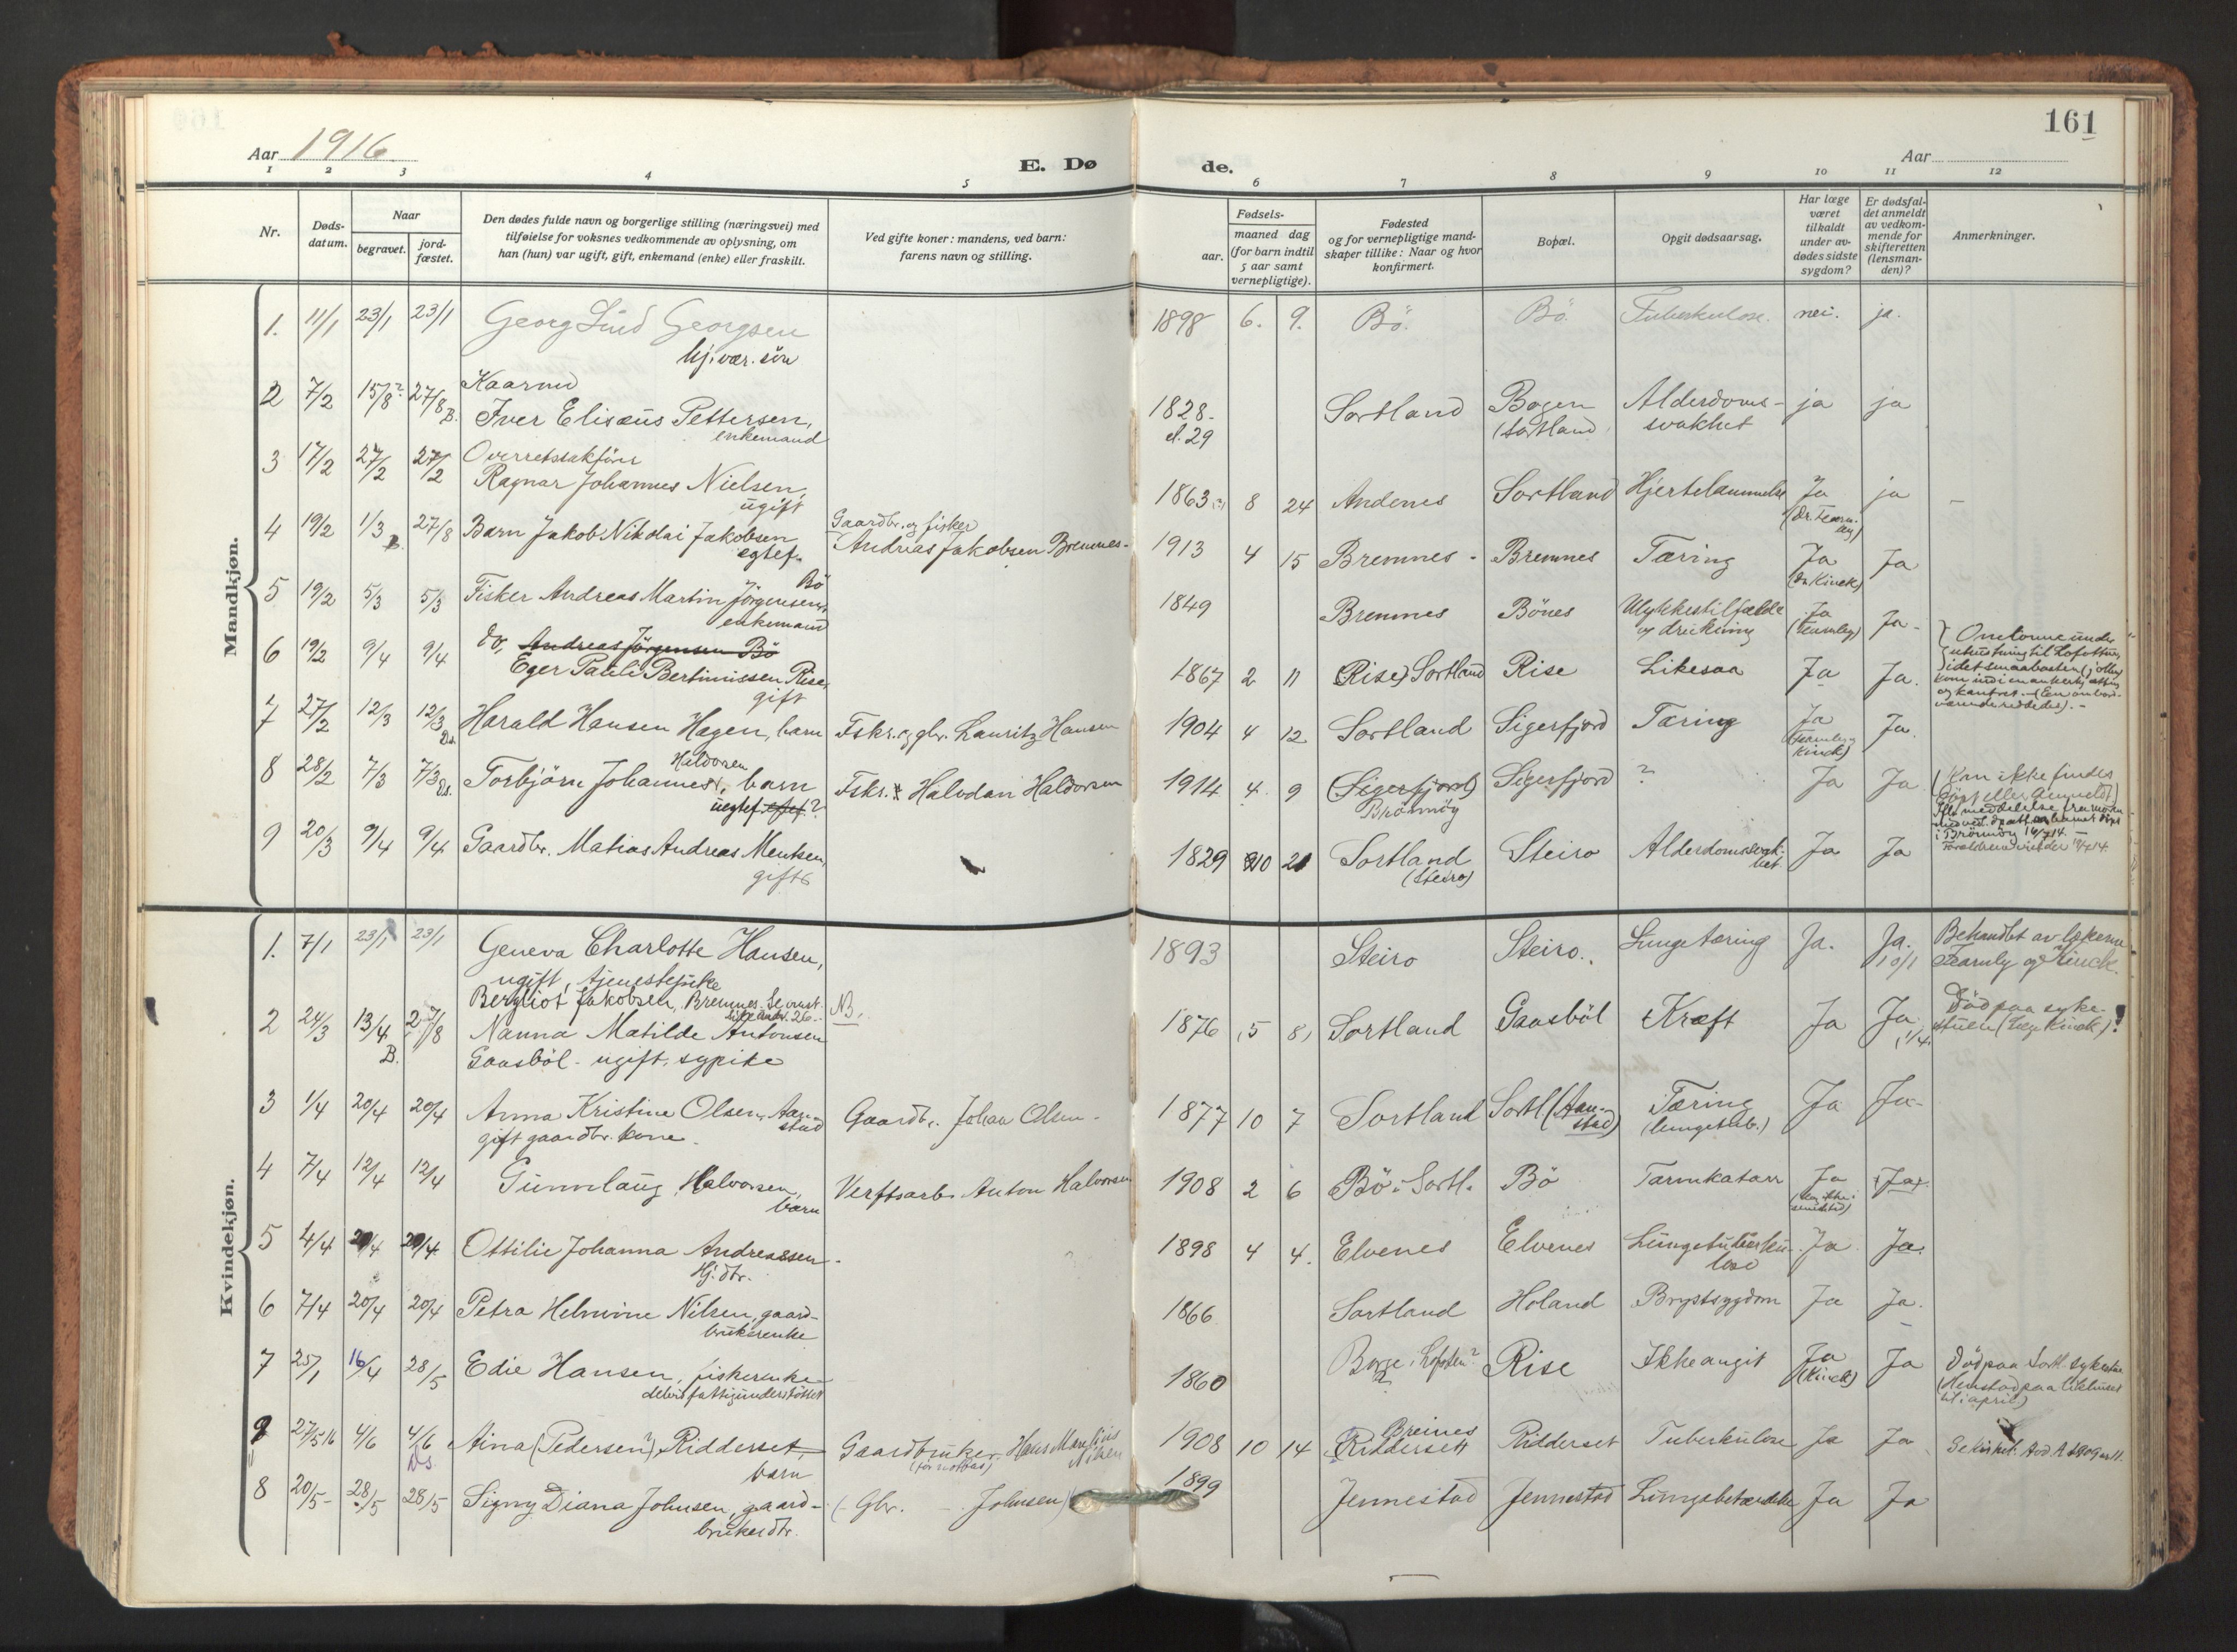 161
Aar 1916
E. Dø
de.
Aar
1 2 3 4 5 6 7 8 9 10 11 12
Nr.
Døds-
datum.
Naar
begravet.
jord-
fæstet.
Den dødes fulde navn og borgerlige stilling (næringsvei) med
tilføielse for voksnes vedkommende av oplysning, om
han (hun) var ugift, gift, enkemand (enke) eller fraskilt.
Ved gifte koner: mandens, ved barn:
farens navn og stilling.
Fødsels-
aar.
maaned dag
(for barn indtil
5 aar samt
vernepligtige).
Fødested
og for vernepligtige mand-
skaper tillike: Naar og hvor
konfirmert.
Bopæl.
Opgit dødsaarsag.
Har læge
været
tilkaldt
under av-
dødes sidste
sygdom?
Er dødsfal-
det anmeldt
av vedkom-
mende for
skifteretten
(lensman-
den)?
Anmerkninger.
Mandkjøn.
1. 11/1 23/1 23/1 Georg Lind Georgsen 1898 6. 9. Bö. Bö. Tuberkulose. nei. ja.
hj. vær. sön
2 7/2 15/8? 27/8 B. Kaarmd
Iver Elisæus Pettersen, 1828- Sortland Bogen Alderdoms- ja ja
enkemand el. 29 (Sortland svakhet
3 17/2 27/2 27/2 Overretssakförer
Ragnar Johannes Nielsen, 1863 8 24 Andenes Sortland Hjertelammelse Ja ja
ugift
4 19/2 1/3 27/8 Barn Jakob Nikolai Jakobsen Gaardbr. og fisker
egtef. Andreas Jakobsen Bremnes- 1913 4 15 Bremnes - Bremnes Tæring Ja Ja
(Dr. Kinck)
5 19/2 5/3 5/3 Fisker Andreas Martin Jörgensen, Bö 1849 Bremnes Bönes Ulykkestilfælde Ja Ja-
enkemand og drukning (Fearnley)
6 19/2 9/4 9/4 do, Andreas Jörgensen Bö
Eger Pauli Bertinussen Rise, 1867 2 11 (Rise) Sortland Rise Likesaa Ja Ja.
gift
7 27/2 12/3 12/3 Ds. Harald Hansen Hagen, barn Fskr. og gbr. Lauritz Hansen 1904 4 12 Sortland Sigerfjord Tæring Ja Ja.
Kinck)
8 28/2 7/3 7/3 Ds. Torbjörn Johannes Haldorsen, barn Fskr. Halvdan Haldorsen 1914 4. 9 (Sigerfjord) Sigerfjord ? Ja Ja
uegtef. egtef.? Brönnöy
(Kan ikke findes
9 20/3 9/4 9/4 Gaardbr. Matias Andreas Mentsen, 1829 10 21 Sortland Steiro Alderdomssvak- Ja Ja
gift (Steiro) het
Kvindekjøn.
1. 7/1 23/1 23/1 Geneva Charlotte Hansen, 1893 Steiro Steiro. Lungetæring Ja. Ja. Behandlet av lægerne
ugift, tjenestepike 10/1 Fearnly og Kinck.
Bergliot Jakobsen, Bremnes.
2 24/3 13/4 B. 27/8 Nanna Matilde Antonsen NB. 1876 5 8 Sortland Gaasböl Kræft Ja Ja 1/4. Död paa syke-
Gaasböl - ugift, sypike stuen (Læge Kinck).
3 1/4 20/4 20/4 Anna Kristine Olsen, Aan- Gaardbr. Johan Olsen - 1877 10 7 Sortland Sortl. (Aan- Tæring Ja Ja-
gift gaardbr. kone. stad stad) (lungetub.)
4 7/4 12/4 12/4 Gunnlaug Halvorsen, Verftsarb. Anton Halvorsen 1908 2 6 Bö i Sortl. Bö Tarmkatarr Ja Ja.
barn
5 4/4 20/4 20/4 Ottilie Johanna Andreassen - 1898 4 4. Elvenes Elvenes Lungetuberku- Ja Ja.
Hj. dtr. lose
6 7/4 20/4 20/4 Petra Helmine Nilsen, gaard- 1866 Sortland Holand Brystsygdom Ja Ja.
brukerenke
7 25/1 16/4 28/5 Edie Hansen, fiskerenke 1860 Borge i Lofoten? Rise Ikke angit Ja Ja Död paa Sortl. sykestue
delvis fattigunderstöttet (Kinck) (Henstod paa likhuset
til i april)
9 27/5 16 4/6 4/6 Ds Aina (Pedersen?) Ridderset, Gaardbruker Hans Mangfius 1908 10 14 Breines Ridderset Tuberkulose Ja Ja
barn Nilsen Riddersett
8 20/5- 28/5 28/5 Signy Diana Johnsen, gaard- (- Gbr. - Johnsen) 1899 Jennestad Jennestad Lungebetændelse Ja Ja
brukerdtr.